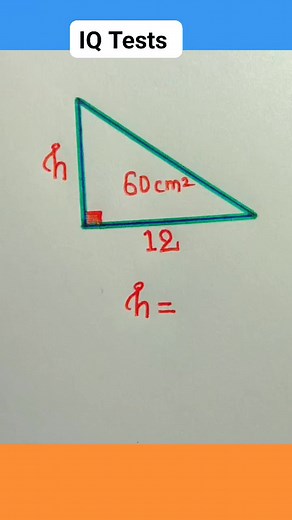 IQ Tests
h
60cm²
12
h =